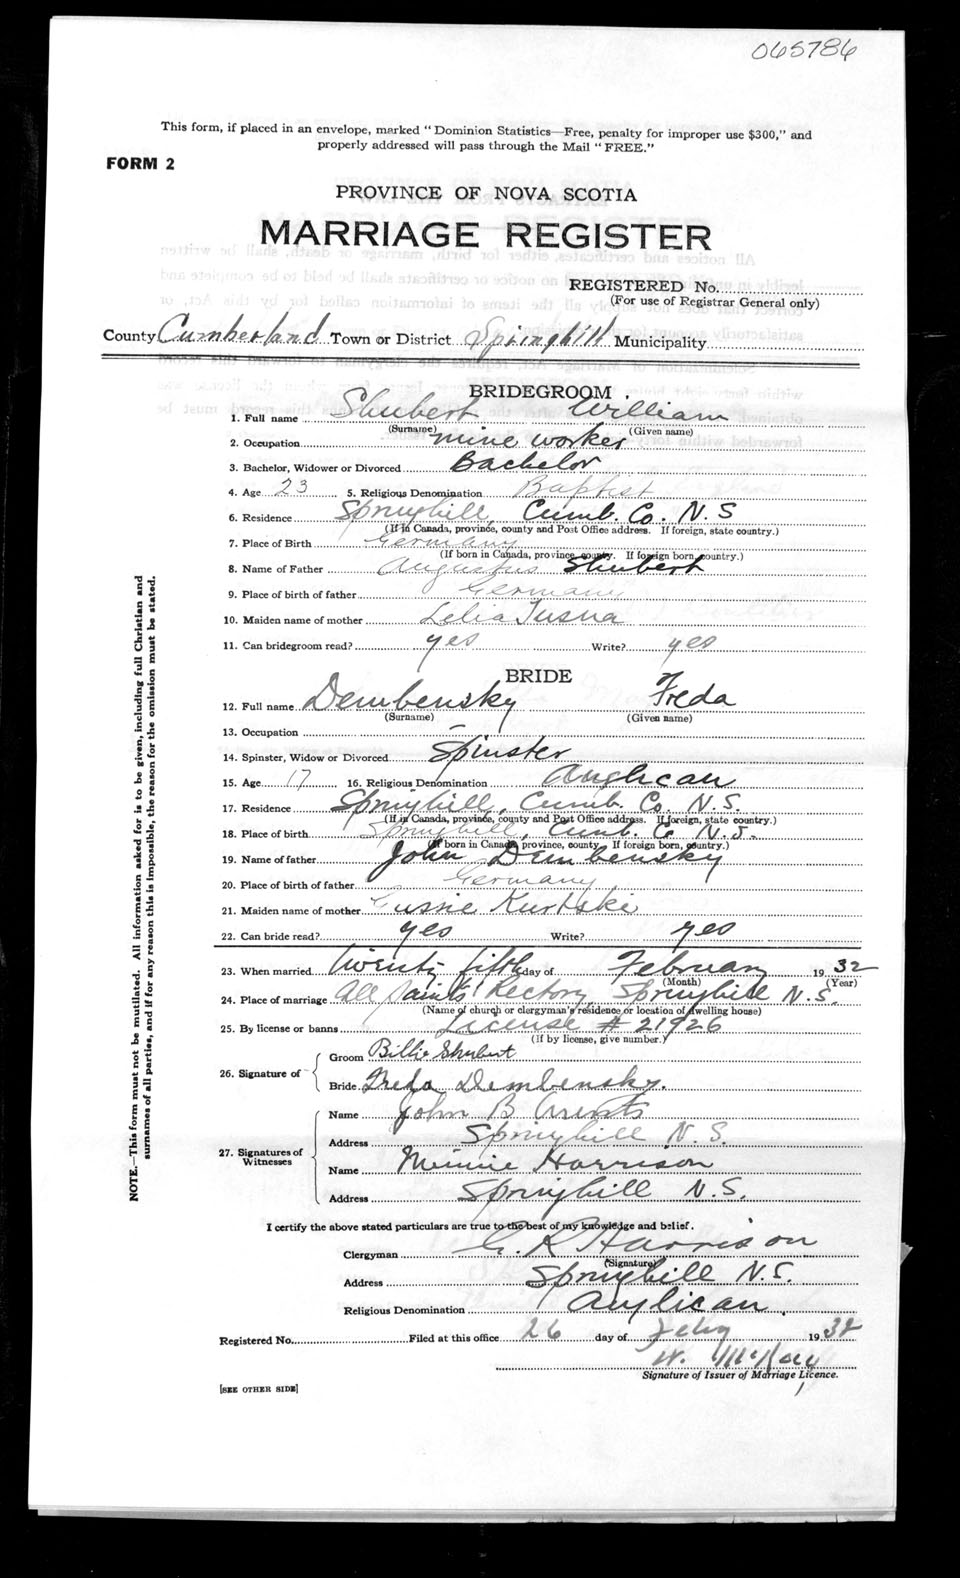 065786
This form, if placed in an envelope, marked "Dominion Statistics—Free, penalty for improper use $300," and
properly addressed will pass through the Mail "FREE."
FORM 2
PROVINCE OF NOVA SCOTIA
MARRIAGE REGISTER
REGISTERED No.
(For use of Registrar General only)
County Cumberland Town or District Springhill Municipality
BRIDEGROOM
1. Full name Shubert William
(Surname) (Given name)
2. Occupation mine worker
3. Bachelor, Widower or Divorced Bachelor
4. Age 23 5. Religious Denomination Baptist
6. Residence Springhill, Cumb. Co. N.S
(If in Canada, province, county and Post Office address. If foreign, state country.)
7. Place of Birth Germany
(If born in Canada, province, county. If foreign born, country.)
8. Name of Father Augustus Shubert
9. Place of birth of father Germany
10. Maiden name of mother Lelia
11. Can bridegroom read? yes Write? yes
BRIDE
12. Full name Dembensky Freda
(Surname) (Given name)
13. Occupation
14. Spinster, Widow or Divorced Spinster
15. Age 17 16. Religious Denomination Anglican
17. Residence Springhill, Cumb. Co. N.S.
(If in Canada, province, county and Post Office address. If foreign, state country.)
18. Place of birth Springhill, Cumb. Co N.S.
(If born in Canada, province, county. If foreign born, country.)
19. Name of father John Dembensky
20. Place of birth of father Germany
21. Maiden name of mother Gussie Kurtski
22. Can bride read? yes Write? yes
23. When married twenty fifth day of February 1932
(Month) (Year)
24. Place of marriage All Saints' Rectory, Springhill N.S.
(Name of church or clergyman's residence or location of dwelling house)
25. By license or banns License # 21926
(If by license, give number.)
26. Signature of Groom Billie Shubert
Bride Freda Dembensky.
27. Signatures of Witnesses Name John B
Address Springhill N.S.
Name Minnie Harrison
Address Springhill N.S.
I certify the above stated particulars are true to the best of my knowledge and belief.
Clergyman G. R Harrison
(Signature)
Address Springhill N.S.
Religious Denomination Anglican.
Registered No. Filed at this office 26 day of Feby 1932
W. McKay
Signature of Issuer of Marriage Licence.
[SEE OTHER SIDE]
NOTE.—This form must not be mutilated. All information asked for is to be given, including full Christian and
surnames of all parties, and if for any reason this is impossible, the reason for the omission must be stated.